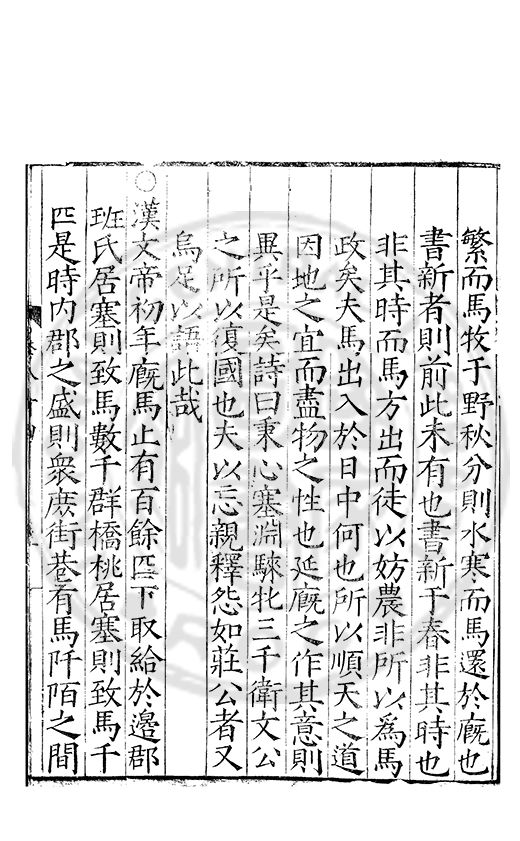 繁而馬牧于野秋分則水寒而馬還於廐也
書新者則前此未有也書新于春非其時也
非其時而馬方出而徒以妨農非所以爲馬
政矣夫馬出入於日中何也所以順天之道
因地之宜而盡物之性也延廐之作其意則
異乎是矣詩曰秉心塞淵騋牝三千衛文公
之所以復國也夫以忘親釋怨如莊公者又
烏足以語此哉
○漢文帝初年廐馬止有百餘匹下取給於邊郡
班氏居塞則致馬數千群橋桃居塞則致馬千
匹是時内郡之盛則衆庶街巷有馬阡陌之間